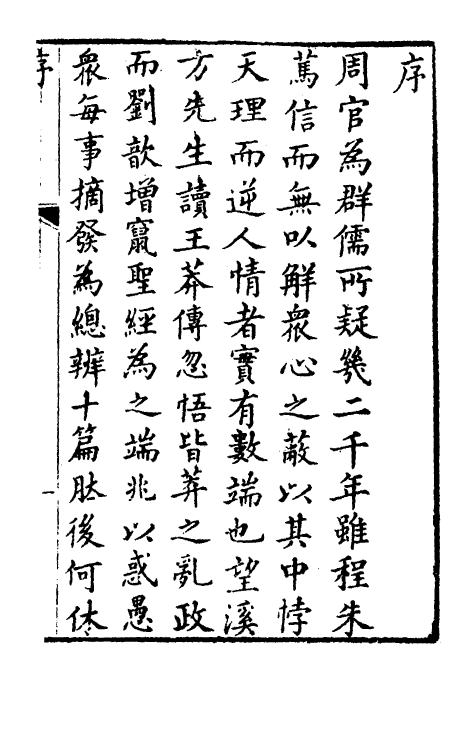 序
周官為群儒所疑幾二千年雖程朱
篤信而無以解衆心之蔽以其中悖
天理而逆人情者實有數端也望溪
方先生讀王莽傳忽悟皆莽之亂政
而劉歆增竄聖經為之端兆以惑愚
衆每事摘發為總辨十篇肰後何休
序
一